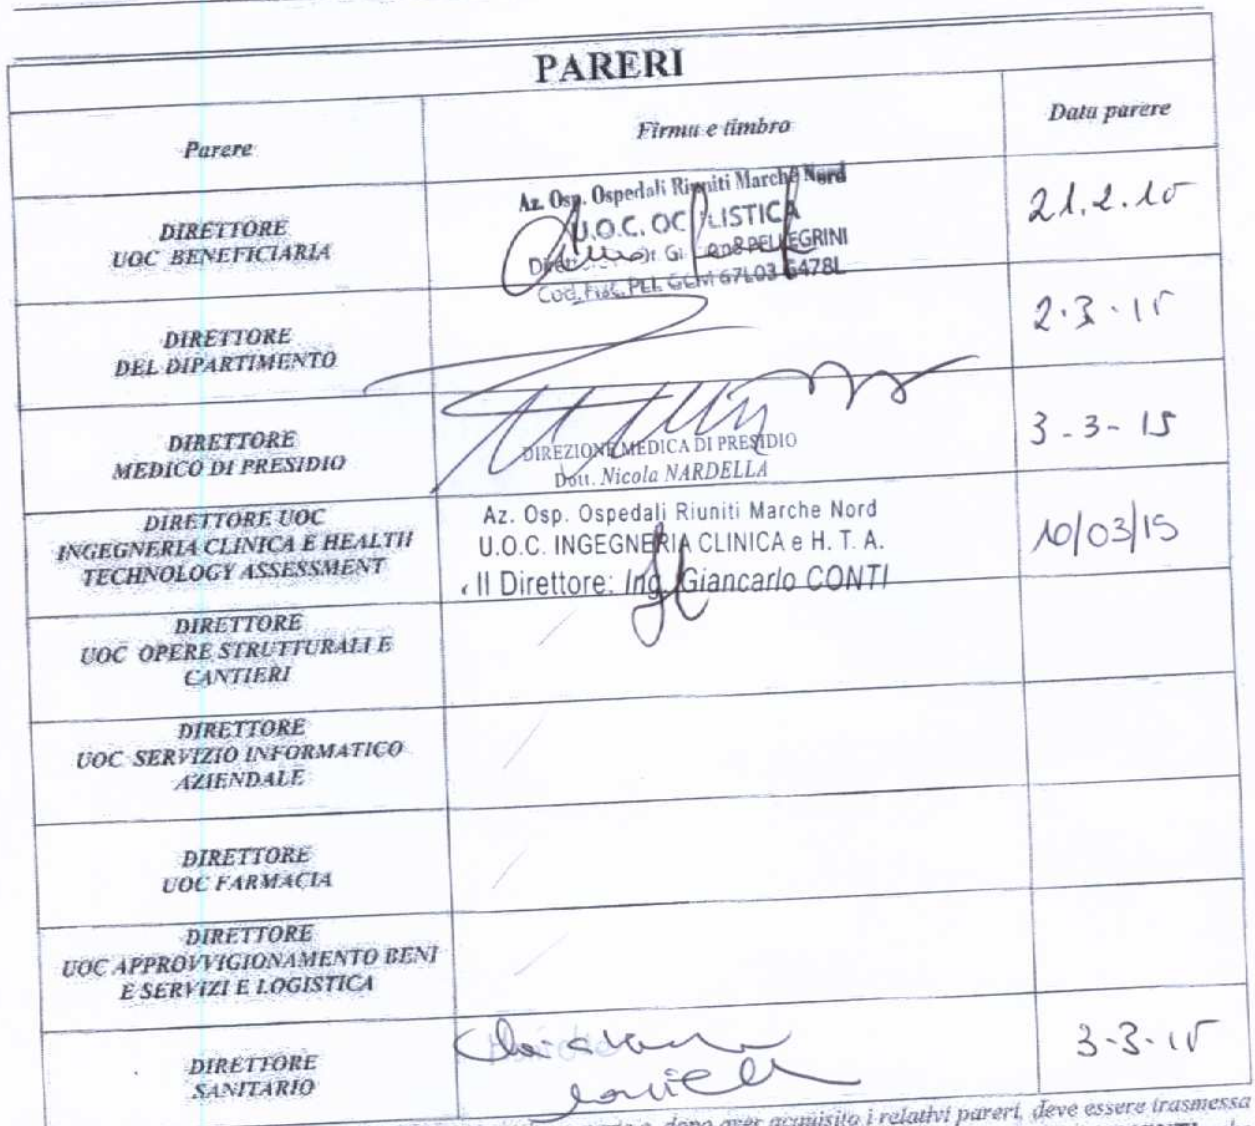 PARERI
Parere
Firma e timbro
Data parere
DIRETTORE
UOC BENEFICIARIA
Az. Osp. Ospedali Riuniti Marche Nord
U.O.C. OCULISTICA
PELLEGRINI
Cod. Fisc. PLL GCM 67L03 G478L
21.2.15
DIRETTORE
DEL DIPARTIMENTO
2.3.15
DIRETTORE
MEDICO DI PRESIDIO
DIREZIONE MEDICA DI PRESIDIO
Dott. Nicola NARDELLA
3-3-15
DIRETTORE UOC
INGEGNERIA CLINICA E HEALTH
TECHNOLOGY ASSESSMENT
Az. Osp. Ospedali Riuniti Marche Nord
U.O.C. INGEGNERIA CLINICA e H. T. A.
Il Direttore: Ing. Giancarlo CONTI
10/03/15
DIRETTORE
UOC OPERE STRUTTURALI E
CANTIERI
DIRETTORE
UOC SERVIZIO INFORMATICO
AZIENDALE
DIRETTORE
UOC FARMACIA
DIRETTORE
UOC APPROVVIGIONAMENTO BENI
E SERVIZI E LOGISTICA
DIRETTORE
SANITARIO
3-3-15
dopo aver acquisito i relativi pareri, deve essere trasmessa